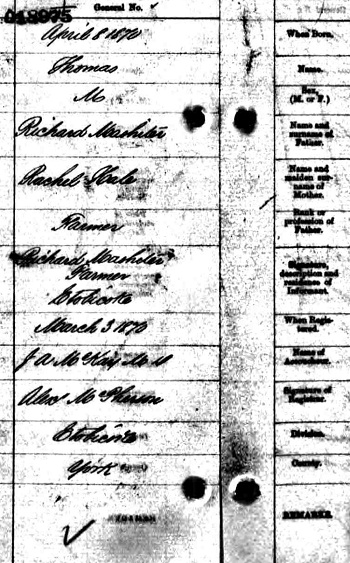 018975
General No.
April 8 1870
When Born.
Thomas
Name.
M
Sex, (M. or F.)
Richard Mashiter
Name and surname of Father.
Rachel Hale
Name and maiden surname of Mother.
Farmer
Rank or profession of Father.
Richard Mashiter
Farmer
Etobicoke
Signature, description and residence of Informant.
March 3 1870
When Registered.
J A McKay M D
Name of Accoucheur.
Alex McPherson
Signature of Registrar.
Etobicoke
Division.
York
County.
REMARKS.